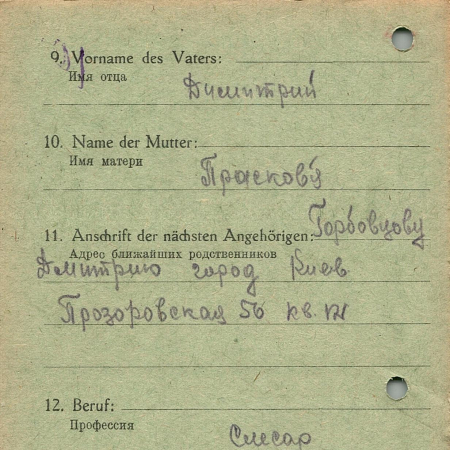 9. Vorname des Vaters:
Имя отца
Димитрий
10. Name der Mutter:
Имя матери
Прасковя
11. Anschrift der nächsten Angehörigen: Горбовцову
Адрес ближайших родственников
Дмитрию город Киев
Прозоровская 56 кв.
12. Beruf:
Профессия
Слесар